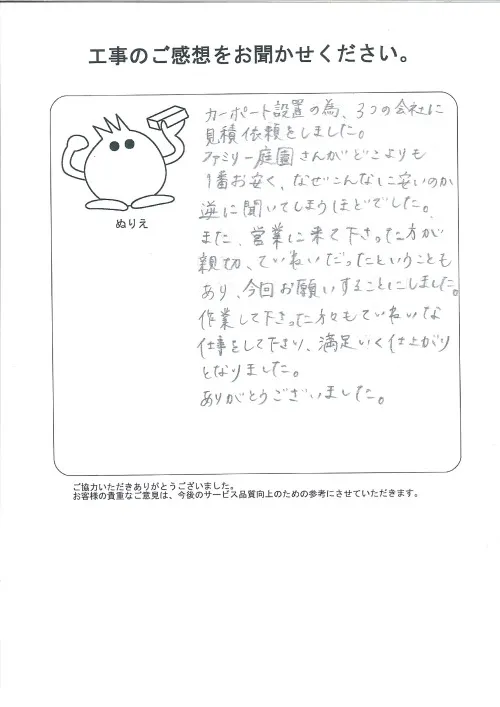 工事のご感想をお聞かせください。
カーポート設置の為、3つの会社に
見積依頼をしました。
ファミリー庭園さんがどこよりも
1番お安く、なぜこんなに安いのか
逆に聞いてしまうほどでした。
また、営業に来て下さった方が
親切、ていねいだったということも
あり、今回お願いすることにしました。
作業して下さった方々もていねいな
仕事をして下さり、満足いく仕上がり
となりました。
ありがとうございました。
ぬりえ
ご協力いただきありがとうございました。
お客様の貴重なご意見は、今後のサービス品質向上のための参考にさせていただきます。